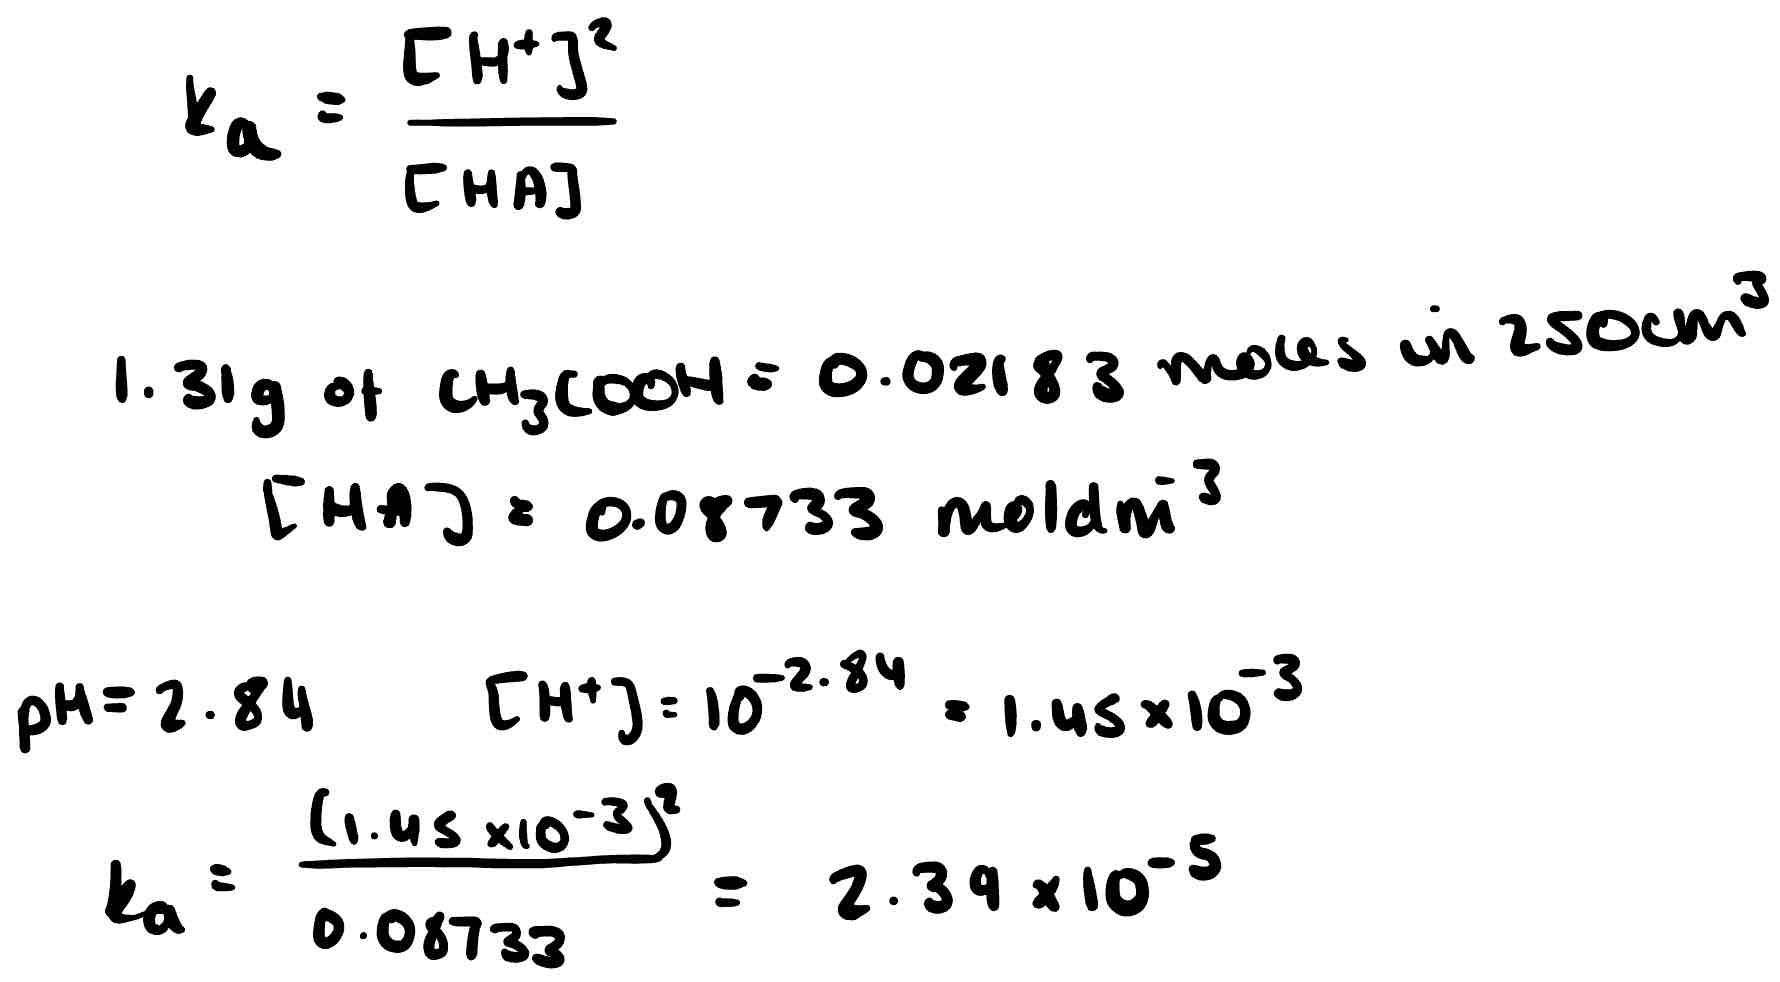 ka = [H⁺]² / [HA]
1.31g of CH₃COOH = 0.02183 moles in 250cm³
[HA] = 0.08733 moldm⁻³
pH = 2.84 [H⁺] = 10⁻²·⁸⁴ = 1.45 × 10⁻³
ka = (1.45 × 10⁻³)² / 0.08733 = 2.39 × 10⁻⁵